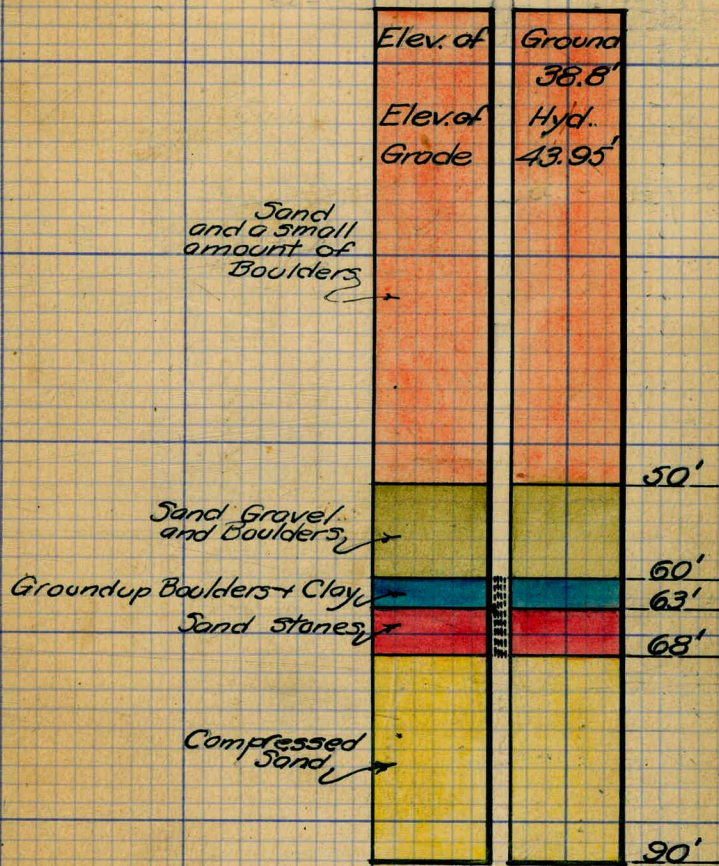 Elev. of Ground
38.8'
Elev. of Hyd.
Grade 43.95'
Sand
and a small
amount of
Boulders
50'
Sand Gravel
and Boulders
60'
Groundup Boulders + Clay
63'
Sand Stones
68'
Compressed
Sand
90'